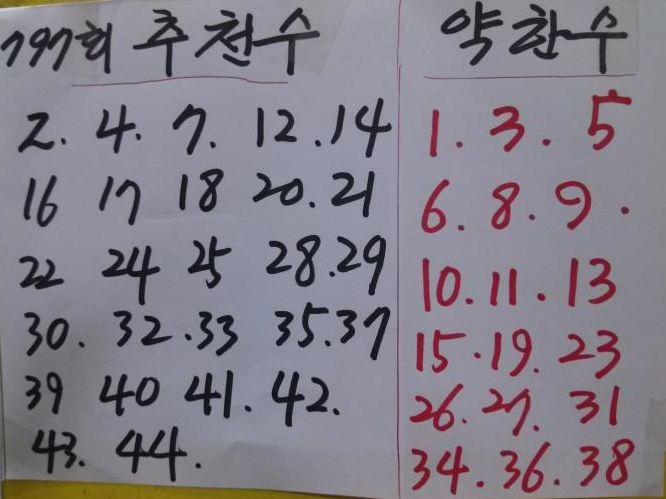 797회 추천수
2. 4. 7. 12. 14
16 17 18 20. 21
22 24 25 28. 29
30. 32. 33 35. 37
39 40 41. 42.
43. 44.
약한수
1. 3. 5
6. 8. 9.
10. 11. 13
15. 19. 23
26. 27. 31
34. 36. 38